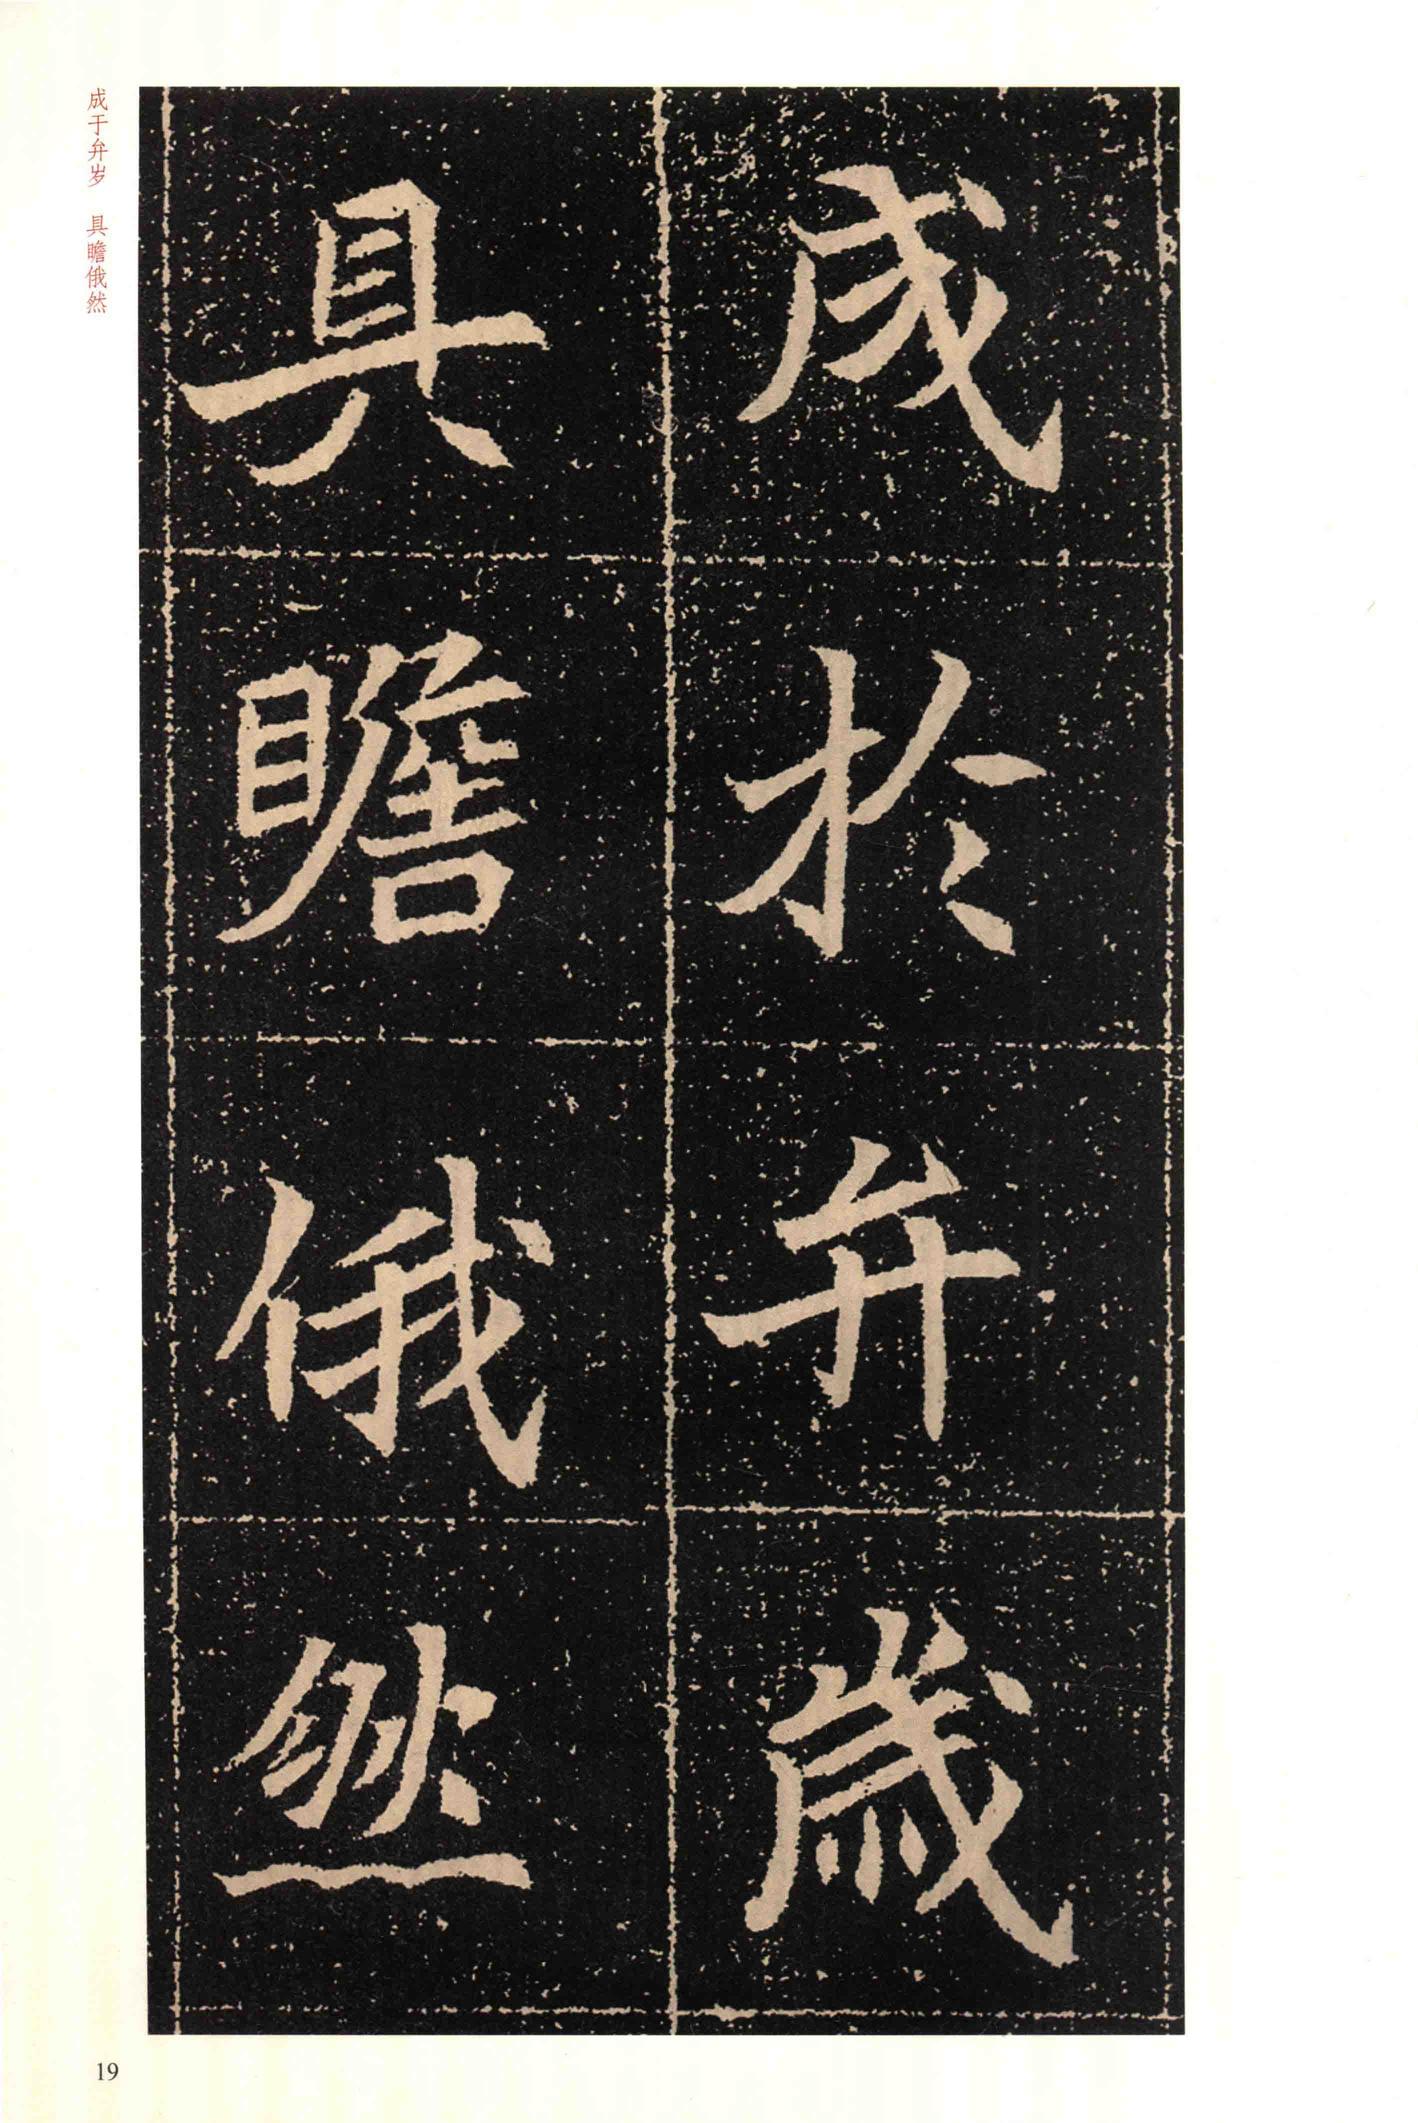 成於弁歲
具瞻俄然
成于弁岁　具瞻俄然
19